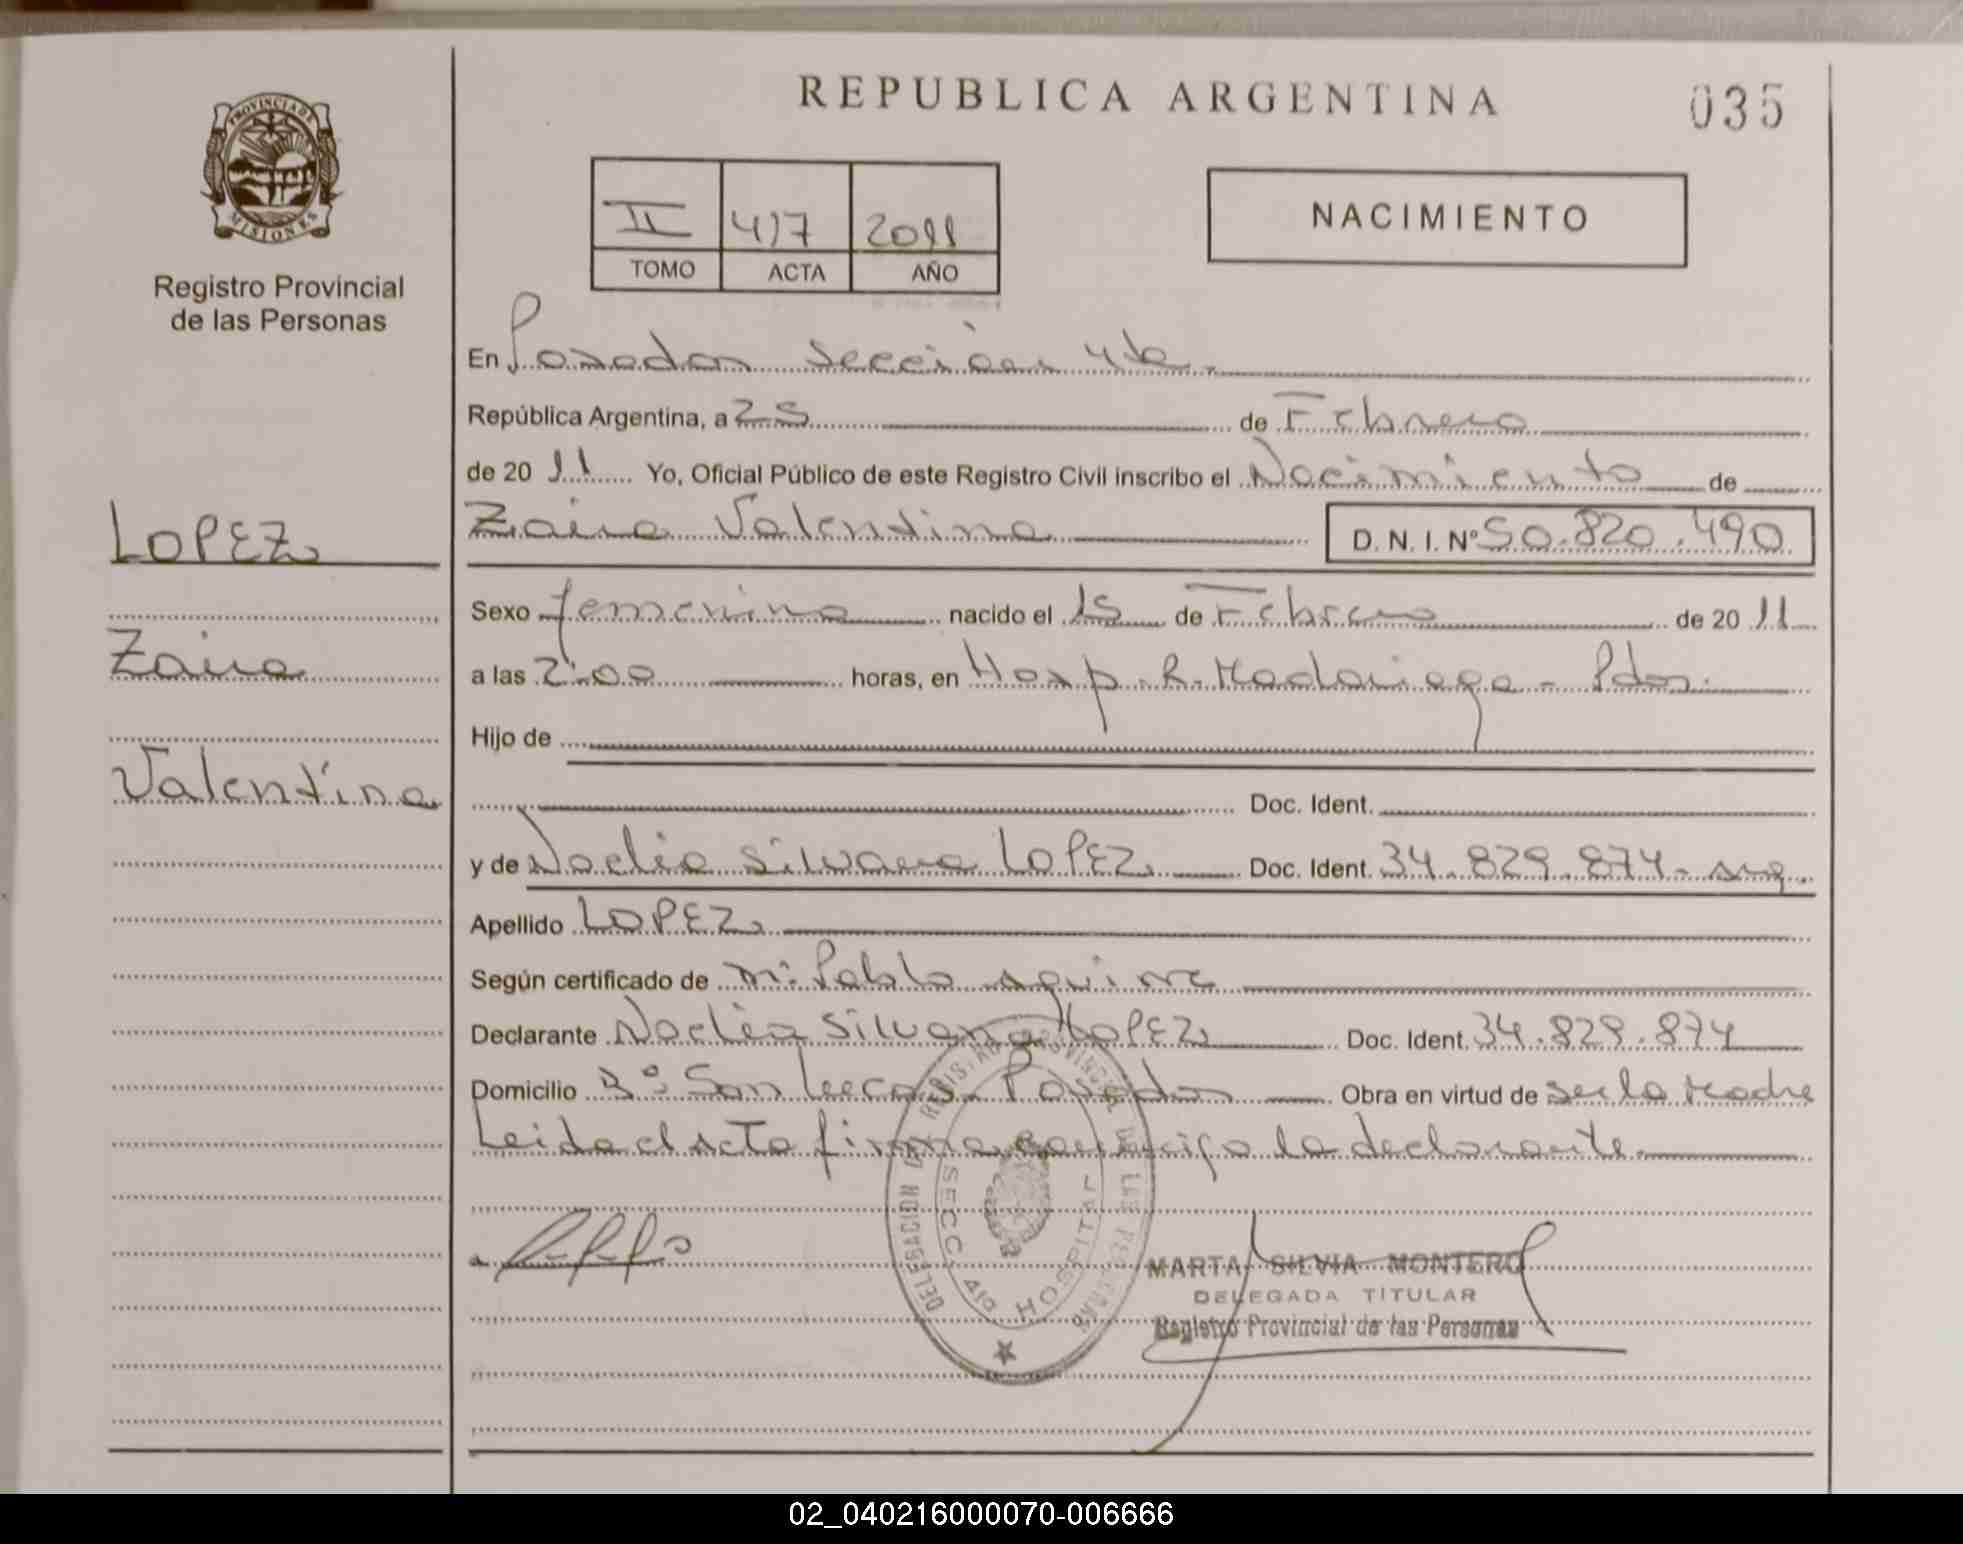 PROVINCIA DE
MISIONES
Registro Provincial
de las Personas
LOPEZ
Zaira
Valentina
REPUBLICA ARGENTINA
035
II 417 2011
TOMO ACTA AÑO
NACIMIENTO
En Posadas sección 4ta.
República Argentina, a 25 de Febrero
de 20 11 Yo, Oficial Público de este Registro Civil inscribo el Nacimiento de
Zaira Valentina D. N. I. Nº 50.820.490
Sexo femenino nacido el 15 de Febrero de 20 11
a las 2:00 horas, en Hosp. R. Madariaga - Pdas.
Hijo de
Doc. Ident.
y de Noelia Silvana LOPEZ Doc. Ident. 34.829.874- arg.
Apellido LOPEZ
Según certificado de m: Pablo Aguirre
Declarante Noelia Silvana LOPEZ Doc. Ident. 34.829.874
Domicilio Bº San Lucas Posadas Obra en virtud de ser la Madre
Leida el Acta firma conmigo la declarante.
DELEGACION DEL REGISTRO PROVINCIAL DE LAS PERSONAS
SECC. 4ta HOSPITAL
MARTA SILVIA MONTERO
DELEGADA TITULAR
Registro Provincial de las Personas
02_040216000070-006666